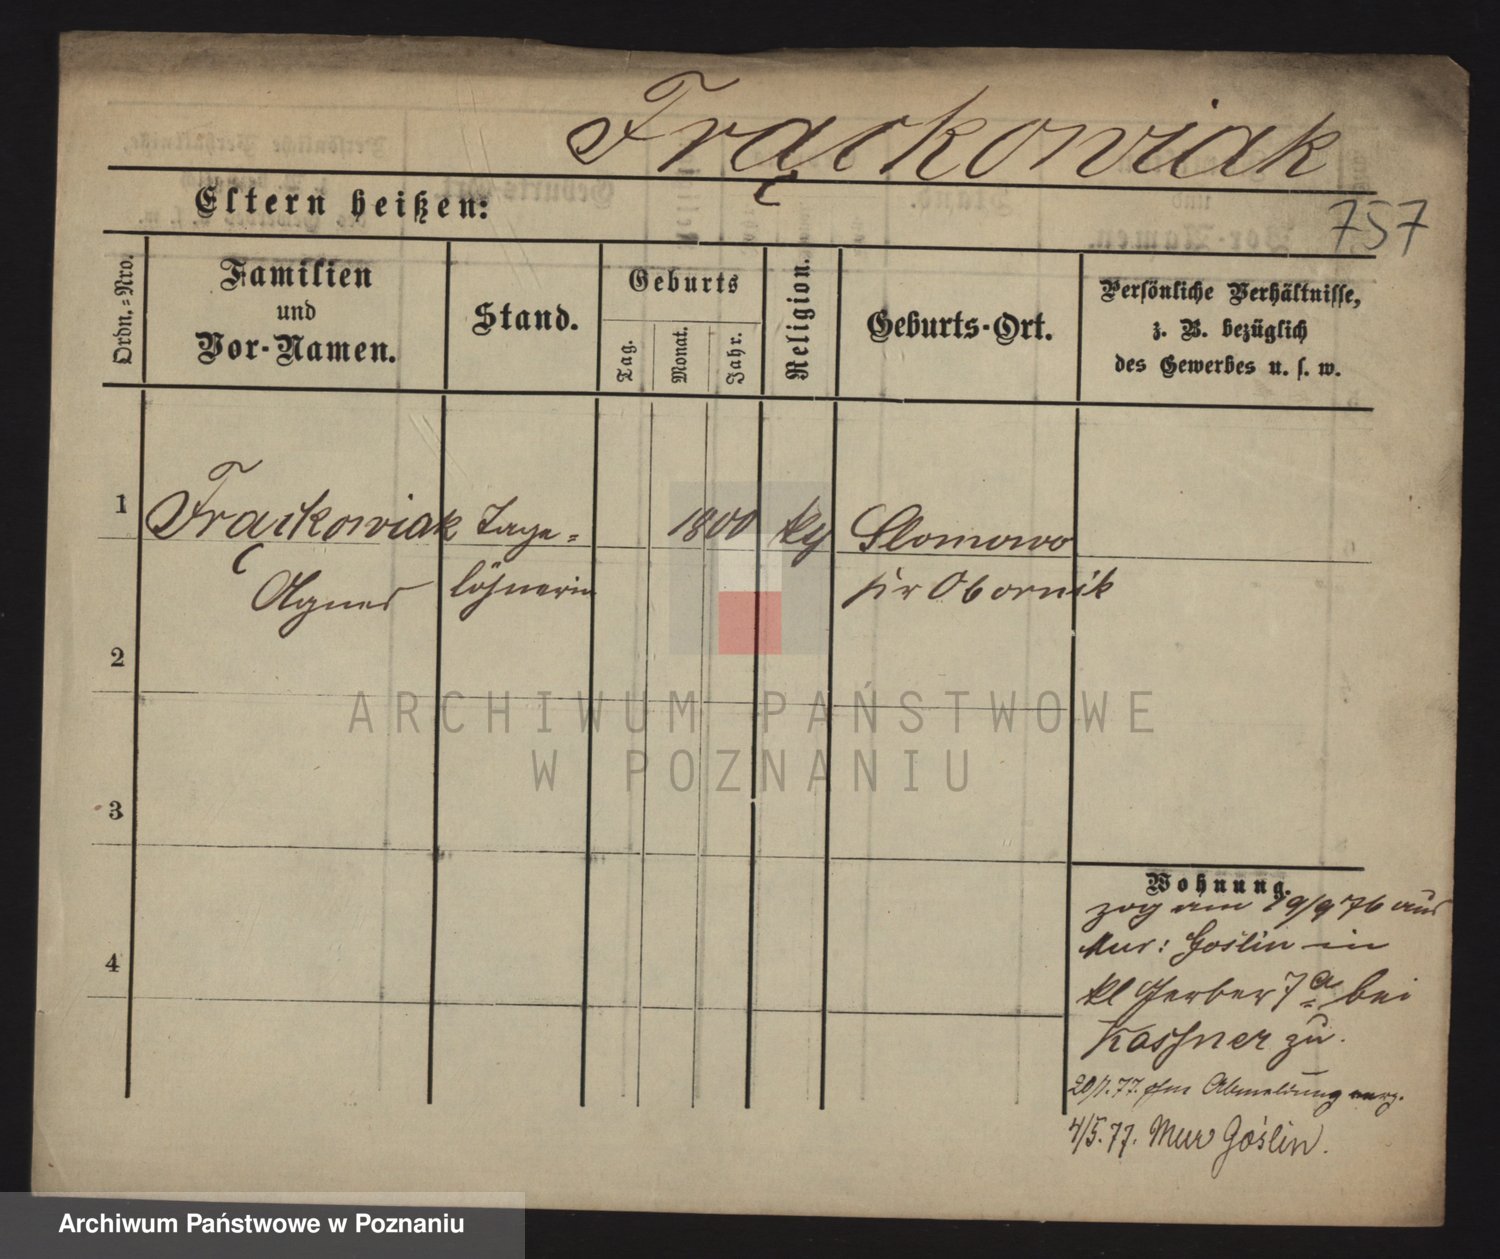 Frąckowiak
Eltern heißen:
757
Ordn.=Nro.
Familien
und
Vor-Namen.
Stand.
Geburts
Tag.
Monat.
Jahr.
Religion.
Geburts-Ort.
Persönliche Verhältnisse,
z. B. bezüglich
des Gewerbes u. s. w.
1
Frąckowiak
Tage=
1800
Slomowo
Agnes
löhnerin
Obornik
2
ARCHIWUM PAŃSTWOWE
W POZNANIU
3
Wohnung.
zog am 29/9 76 aus
Mur: Goślin in
4
kl Gerber 7a bei
zu.
20/1. 77. Abmeldung
4/5. 77. Mur Goślin.
Archiwum Państwowe w Poznaniu